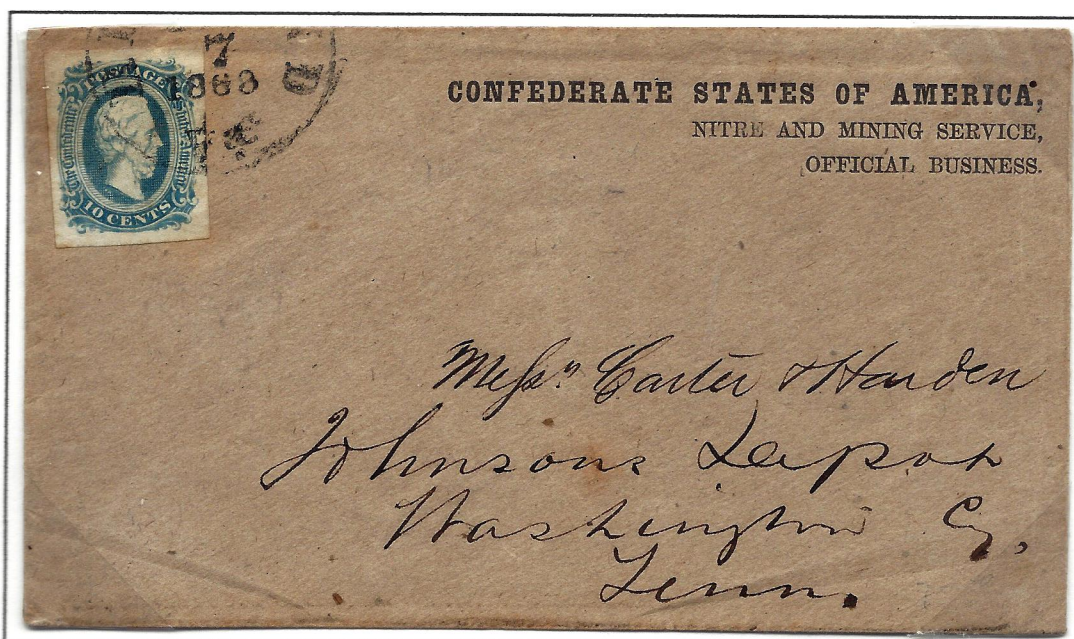 7
1863
POSTAGE
The Confederate States of America
10 CENTS
CONFEDERATE STATES OF AMERICA,
NITRE AND MINING SERVICE,
OFFICIAL BUSINESS.
Messrs Carter & Harden
Johnsons Depot
Washington Cy,
Tenn.